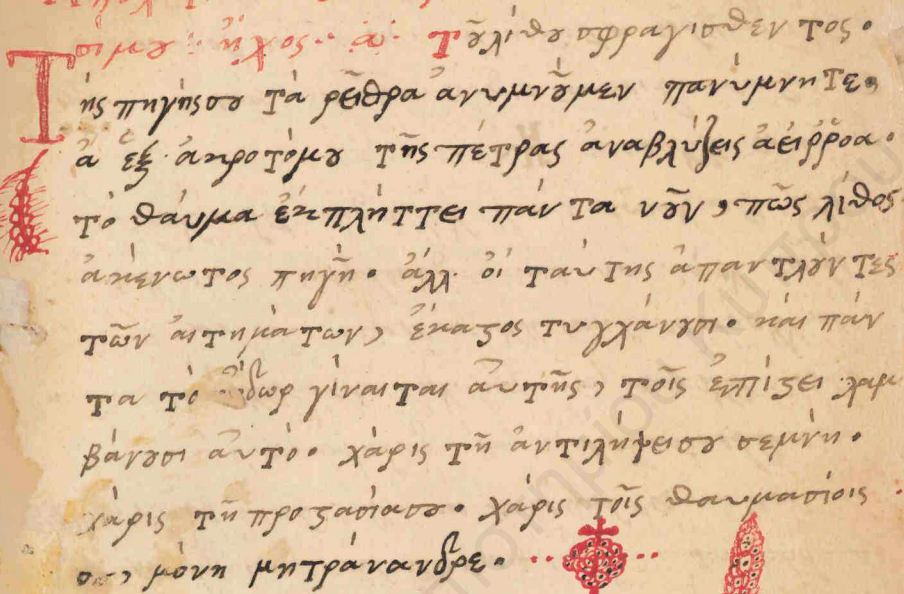 σίμου : ἦχος · α · Τοῦ λίθου σφραγισθέντος ·
Τῆς πηγῆς σου τὰ ρεῖθρα ἀνυμνοῦμεν πανύμνητε ·
ἃ ἐξ ἀκροτόμου τῆς πέτρας ἀναβλύζεις ἀείρροα ·
τὸ θαῦμα ἐκπλήττει πάντα νοῦν, πῶς λίθος
ἀκένωτος πηγή · ἀλλ οἱ ταύτης ἀπαντλοῦντες
τῶν αἰτημάτων, ἕκαστος τυγχάνουσι · καὶ πάν
τα τὸ ὕδωρ γίναιται αὐτῆς, τοῖς ἐν πίστει λαμ
βάνουσι αὐτό · χάρις τῇ ἀντιλήψει σου σεμνή ·
χάρις τῇ προστασία σου · χάρις τοῖς θαυμασίοις
σου, μόνη μήτρ ἄνανδρε ·